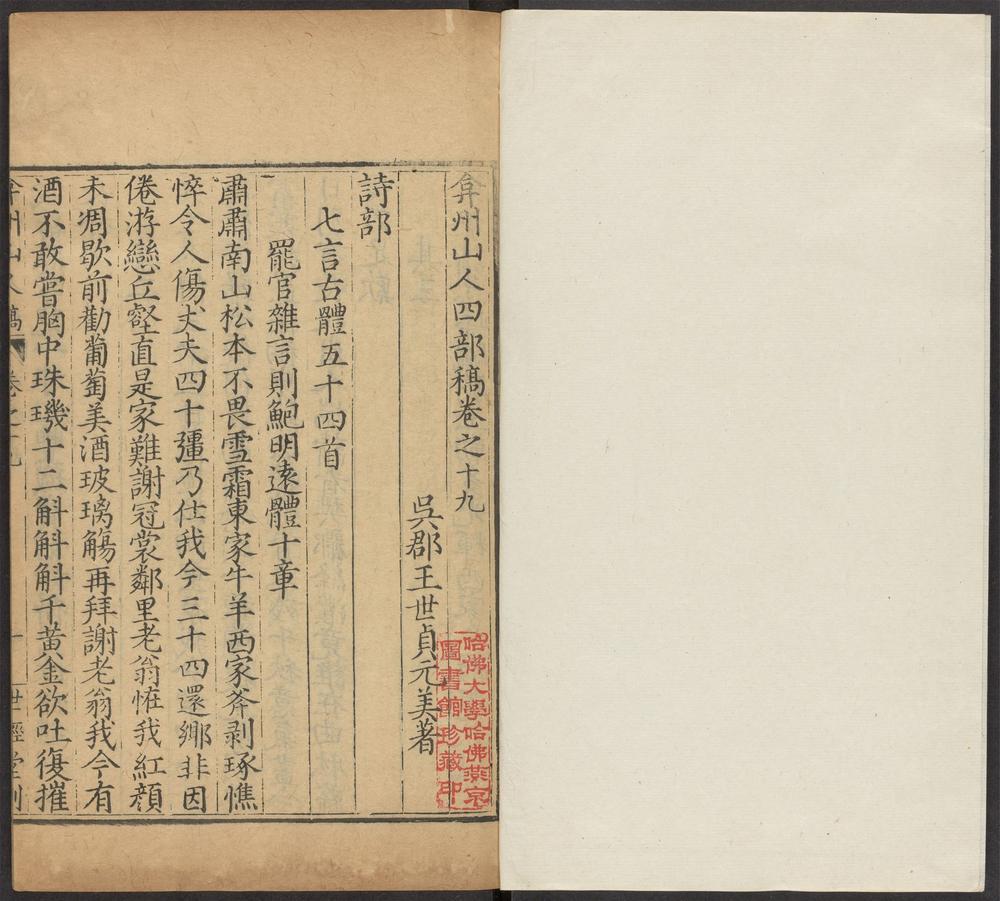 弇州山人四部稿卷之十九
吳郡王世貞元美著
詩部
七言古體五十四首
罷官雜言則鮑明遠體十章
肅肅南山松本不畏雪霜東家牛羊西家斧剥琢憔
悴令人傷丈夫四十彊乃仕我今三十四還鄉非因
倦游戀丘壑直是家難謝冠裳鄰里老翁恠我紅顔
未凋歇前勸葡萄美酒玻璃觴再拜謝老翁我今有
酒不敢嘗胸中珠璣十二斛斛斛千黃金欲吐復摧
弇州山人稿 卷之十九 一 世經堂刻
哈佛大學哈佛燕京
圖書館珍藏印